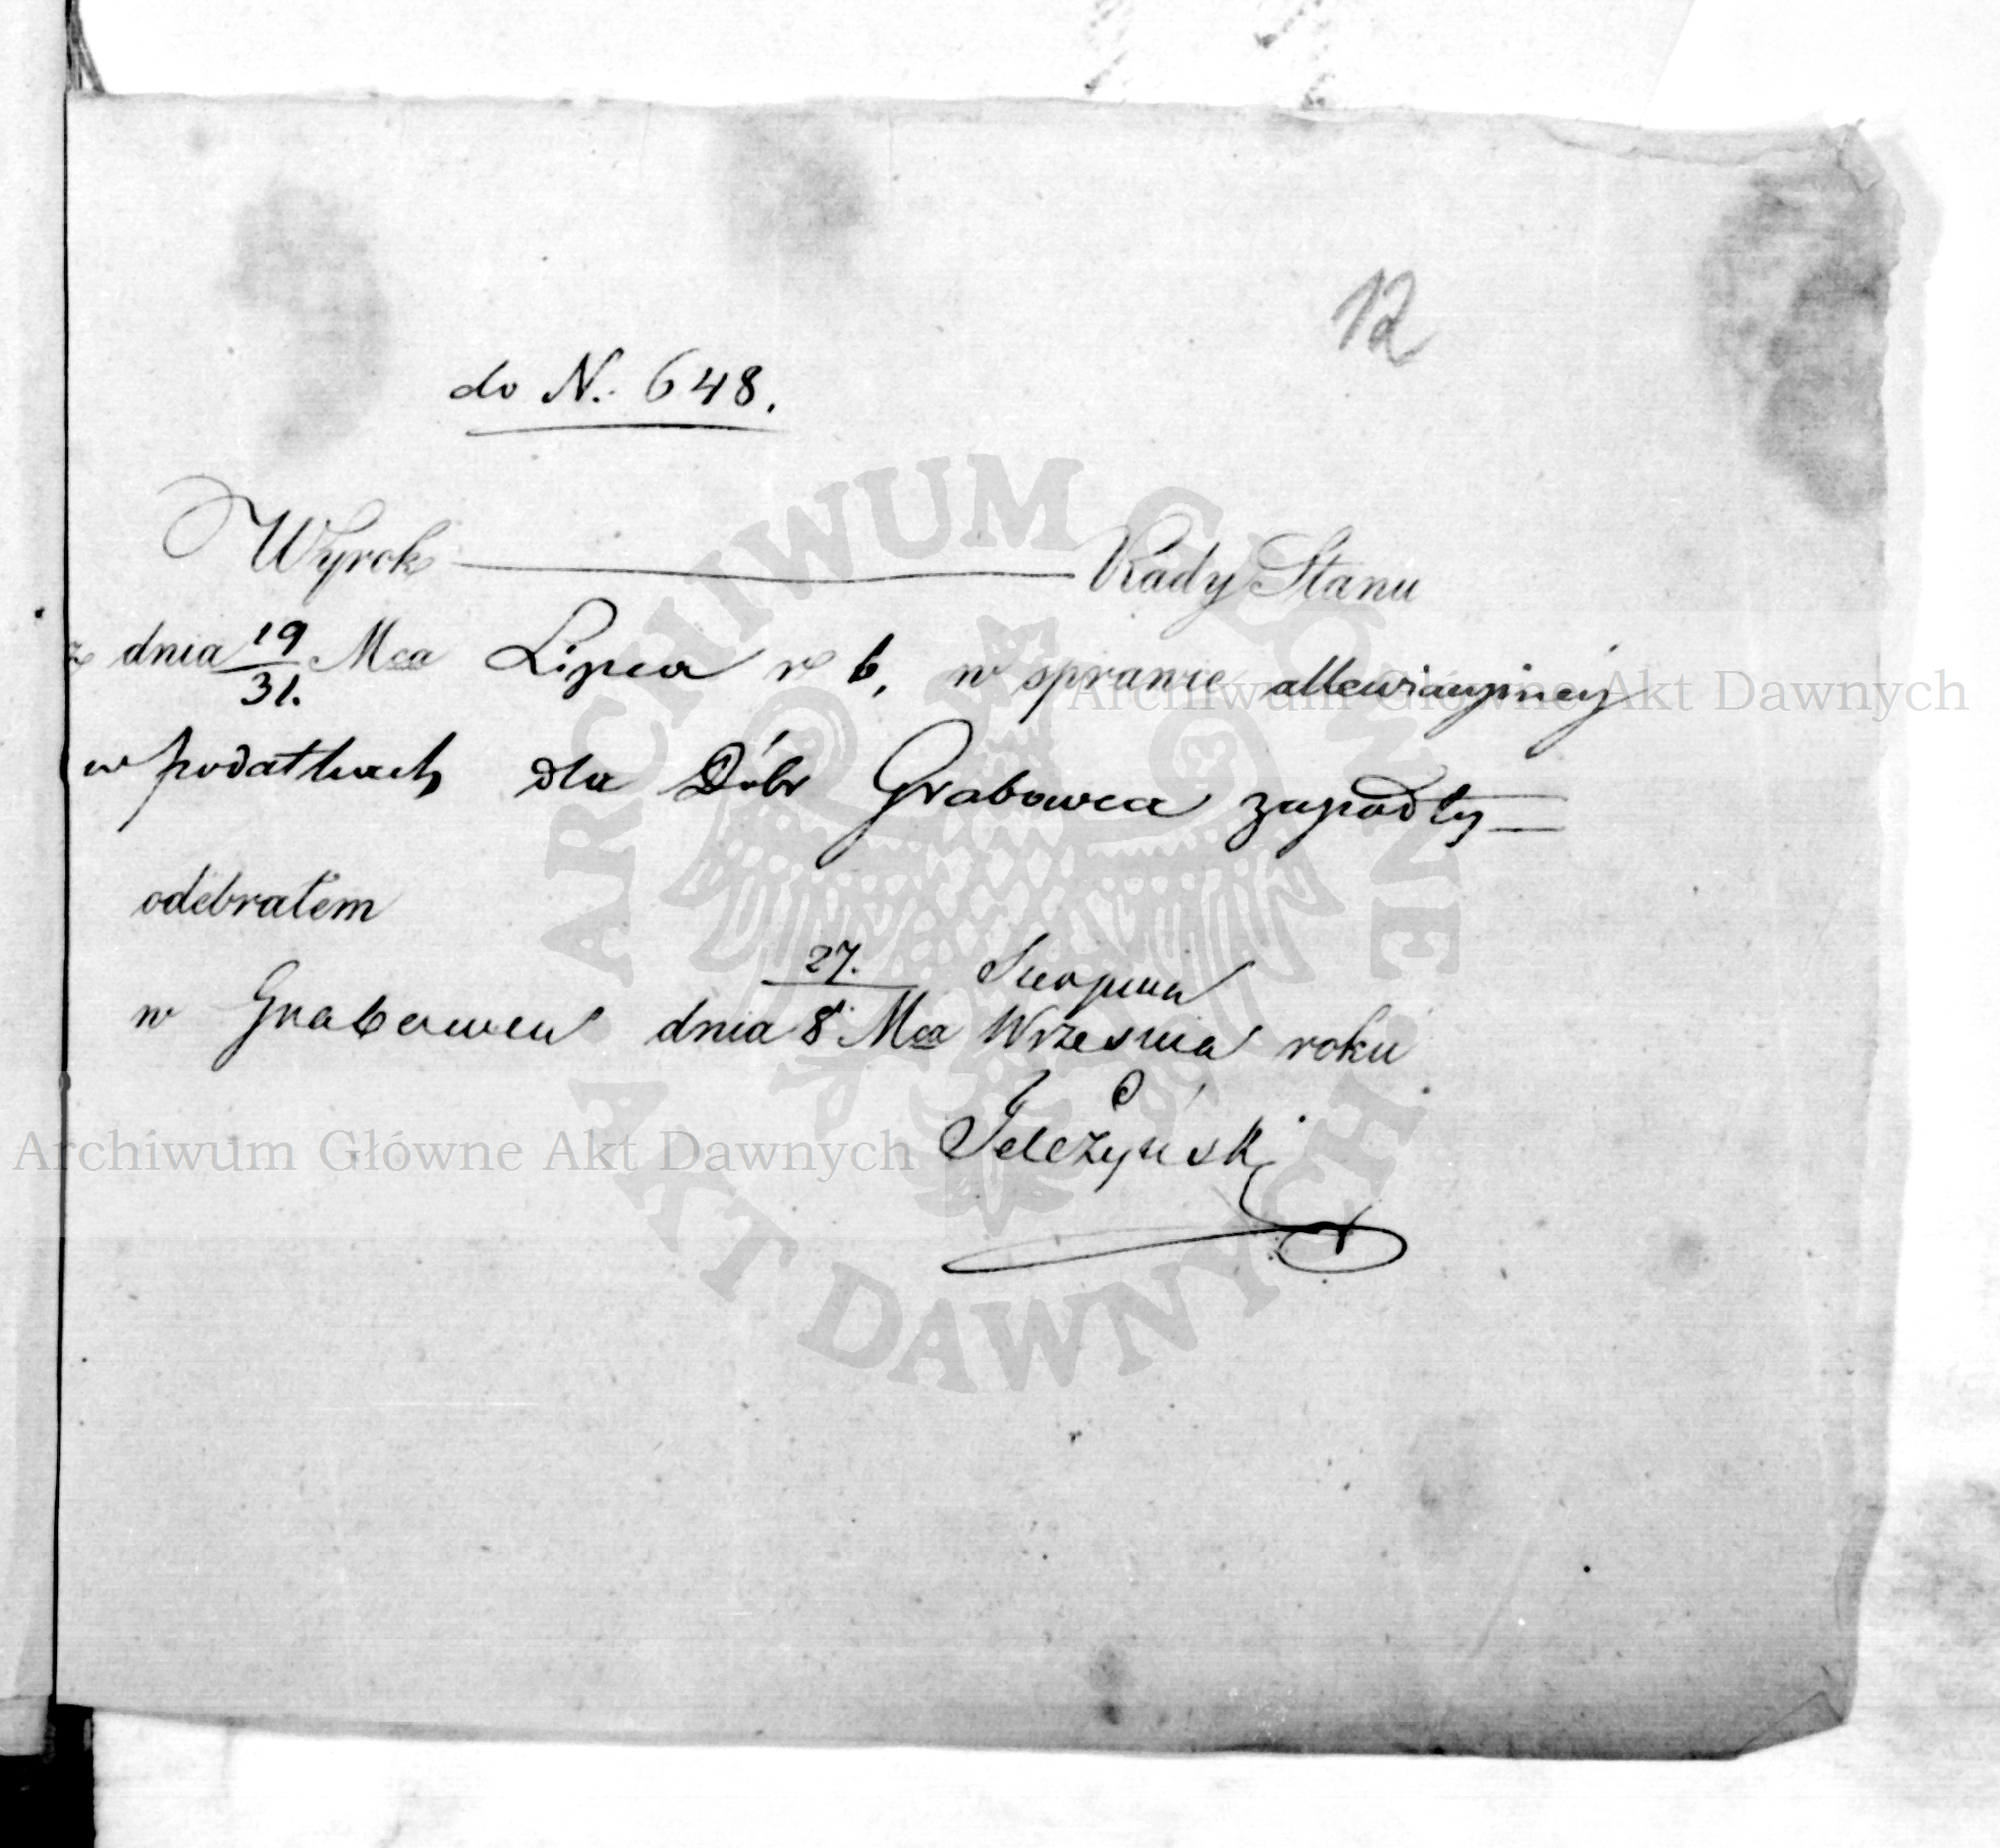 12
do N. 648.
Wyrok — Rady Stanu
z dnia 19/31. Mca Lipca r b, w sprawie allewiacyjney
w podatkach dla Dóbr Grabowca zapadły —
odebrałem
27. Sierpnia
w Grabowcu dnia 8 Mca Września roku
Jelczyński
ARCHIWUM GŁÓWNE AKT DAWNYCH
Archiwum Główne Akt Dawnych
Archiwum Główne Akt Dawnych